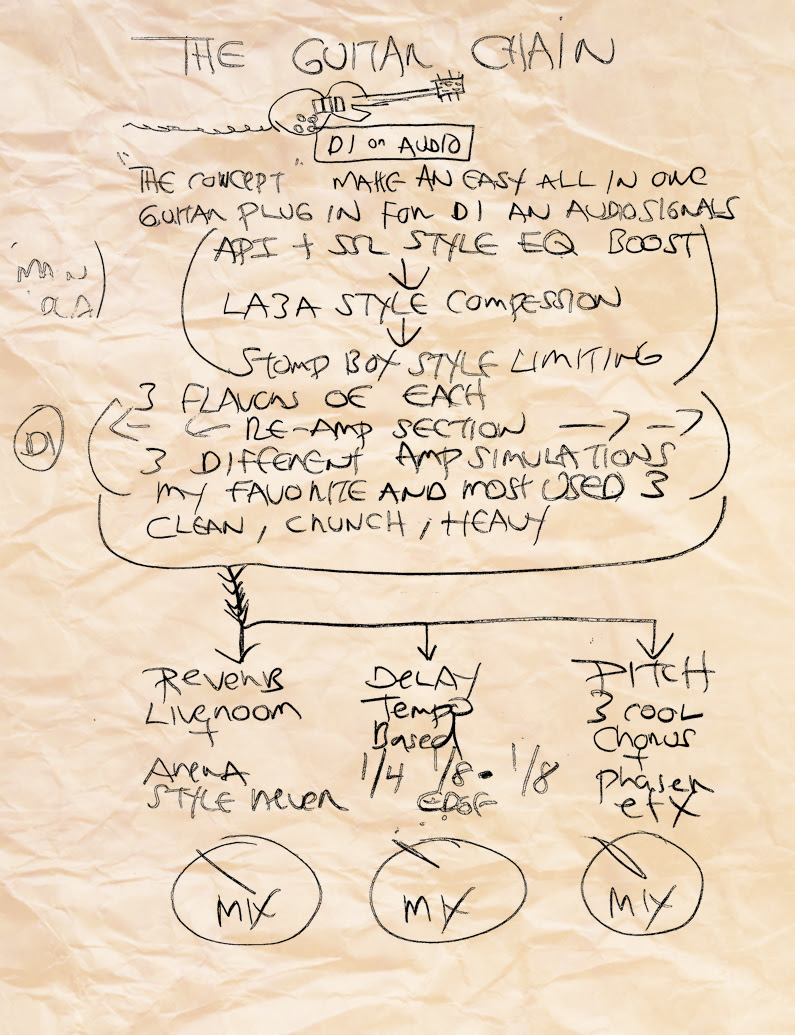 THE GUITAR CHAIN
DI on AUDIO
"THE CONCEPT" MAKE AN EASY ALL IN ONE
GUITAR PLUG IN FOR DI AN AUDIOSIGNALS
API + SSL STYLE EQ BOOST
MAIN
LA3A STYLE COMPESSION
STOMP BOX STYLE LIMITING
3 FLAVORS OF EACH
DI
RE-AMP SECTION
3 DIFFERENT AMP SIMULATIONS
MY FAVORITE AND MOST USED 3
CLEAN, CRUNCH, HEAVY
REVERB DELAY PITCH
Liveroom Tempo 3 cool
+ Based Chorus
+
Arena 1/4 1/8. 1/8 phaser
STYLE REVER EDGE efx
MIX MIX MIX